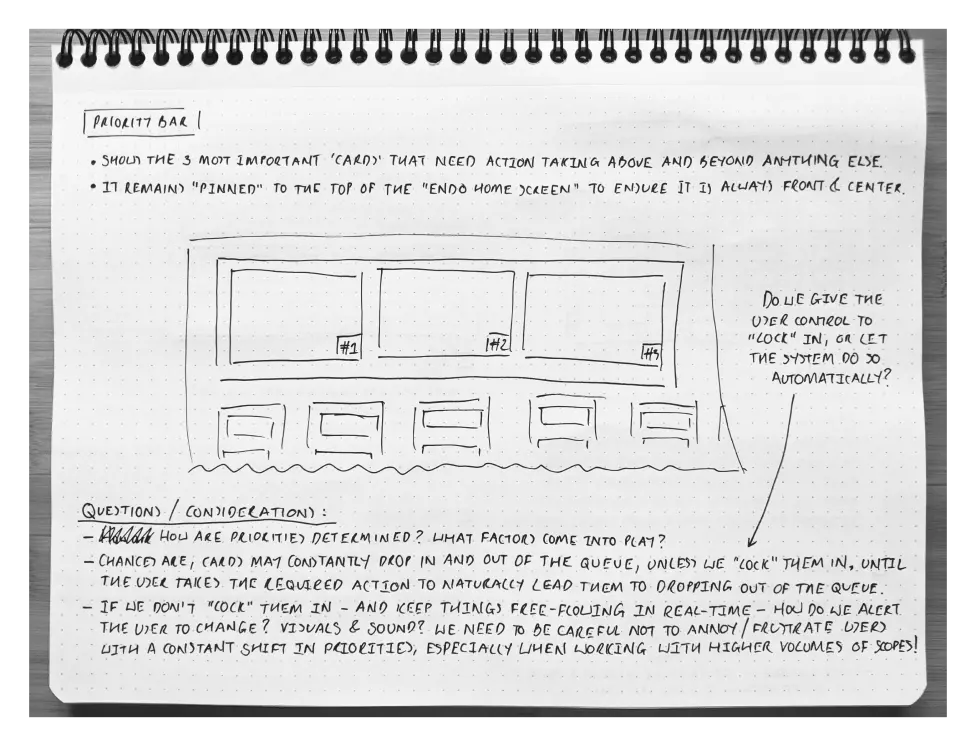 PRIORITY BAR
• SHOWS THE 3 MOST IMPORTANT 'CARDS' THAT NEED ACTION TAKING ABOVE AND BEYOND ANYTHING ELSE.
• IT REMAINS "PINNED" TO THE TOP OF THE "ENDO HOME SCREEN" TO ENSURE IT IS ALWAYS FRONT & CENTER.
#1
#2
#3
DO WE GIVE THE
USER CONTROL TO
"LOCK" IN, OR LET
THE SYSTEM DO SO
AUTOMATICALLY?
QUESTIONS / CONSIDERATIONS:
– HOW ARE PRIORITIES DETERMINED? WHAT FACTORS COME INTO PLAY?
– CHANCES ARE, CARDS MAY CONSTANTLY DROP IN AND OUT OF THE QUEUE, UNLESS WE "LOCK" THEM IN, UNTIL
THE USER TAKES THE REQUIRED ACTION TO NATURALLY LEAD THEM TO DROPPING OUT OF THE QUEUE.
– IF WE DON'T "LOCK" THEM IN – AND KEEP THINGS FREE-FLOWING IN REAL-TIME – HOW DO WE ALERT
THE USER TO CHANGE? VISUALS & SOUND? WE NEED TO BE CAREFUL NOT TO ANNOY/FRUSTRATE USERS
WITH A CONSTANT SHIFT IN PRIORITIES, ESPECIALLY WHEN WORKING WITH HIGHER VOLUMES OF SCOPES!